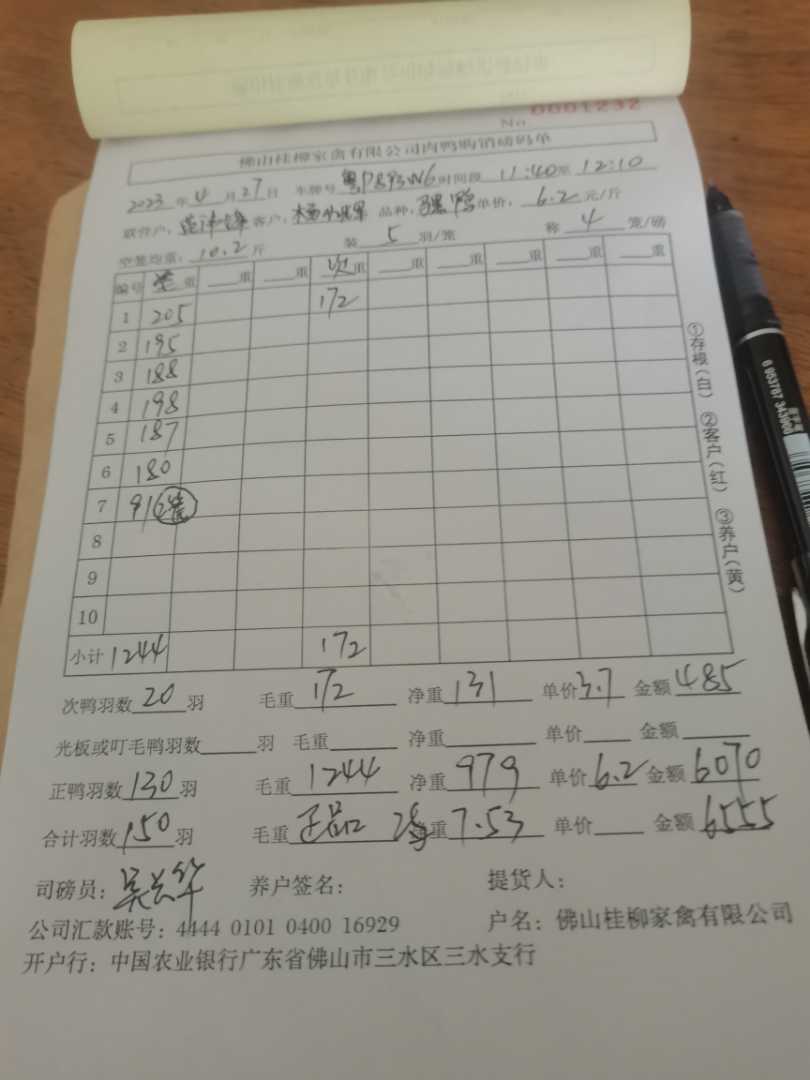 No 0001232
佛山桂柳家禽有限公司肉鸭购销磅码单
2023 年 4 月 27 日 车牌号 粤P893W6 时间段 11:40 至 12:10
联养户: 客户: 杨 品种: 骡鸭 单价: 6.2 元/斤
空笼均重: 10.2 斤 装 5 羽/笼 称 4 笼/磅
编号 重 重 重 次 重 重 重 重 重 重
1 205 172
2 195
3 188
4 198
5 187
6 180
7 91 2笼
8
9
10
小计 1244 172
次鸭羽数 20 羽 毛重 172 净重 131 单价 3.7 金额 485
光板或叮毛鸭羽数 羽 毛重 净重 单价 金额
正鸭羽数 130 羽 毛重 1244 净重 979 单价 6.2 金额 6070
合计羽数 150 羽 毛重 正品 净重 7.53 单价 金额 6555
司磅员: 吴 华 养户签名: 提货人:
公司汇款账号: 4444 0101 0400 16929 户名: 佛山桂柳家禽有限公司
开户行: 中国农业银行广东省佛山市三水区三水支行
①存根(白) ②客户(红) ③养户(黄)
6 953787 343900